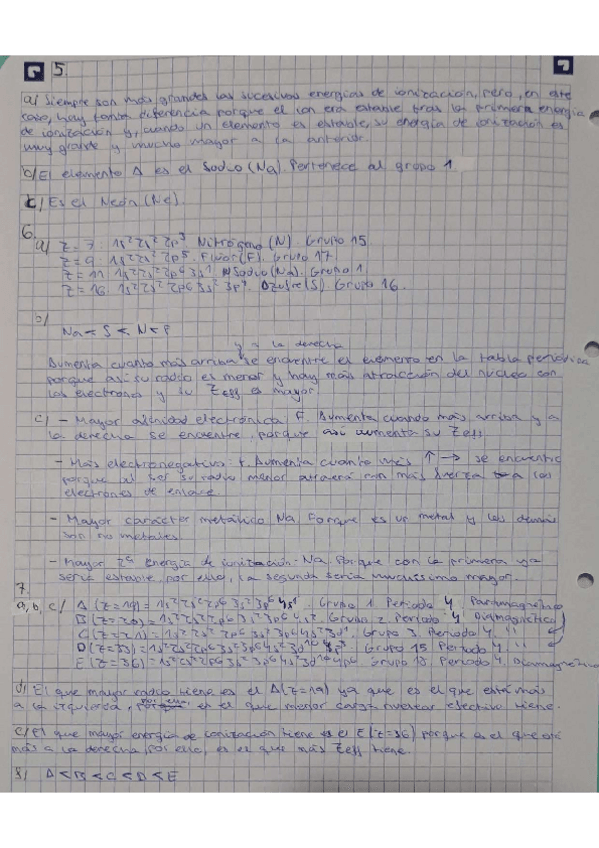 5
a) Siempre son más grandes las sucesivas energías de ionización, pero, en este
caso, hay tanta diferencia porque el ion era estable tras la primera energía
de ionización y, cuando un elemento es estable, su energía de ionización es
muy grande y mucho mayor a la anterior.
b) El elemento A es el Sodio (Na). Pertenece al grupo 1.
c) Es el Neón (Ne).
6.
a) Z = 7: 1s² 2s² 2p³ Nitrógeno (N). Grupo 15
Z = 9: 1s² 2s² 2p⁵. Flúor (F). Grupo 17
Z = 11: 1s² 2s² 2p⁶ 3s¹ Sodio (Na). Grupo 1
Z = 16: 1s² 2s² 2p⁶ 3s² 3p⁴. Azufre (S). Grupo 16.
b)
Na < S < N < F
y a la derecha
Aumenta cuanto más arriba se encuentre el elemento en la tabla periódica
porque así su radio es menor y hay más atracción del núcleo con
los electrones y su Zeff es mayor.
c) - Mayor afinidad electrónica F. Aumenta cuando más arriba y a
la derecha se encuentre, porque así aumenta su Zeff
- Más electronegativo: F. Aumenta cuanto más ↑ → se encuentre
porque al ser su radio menor atraerá con más fuerza a los
electrones de enlace.
- Mayor carácter metálico Na Porque es un metal y los demás
son no metales
- Mayor 2ª energía de ionización: Na Porque con la primera ya
sería estable, por ello, la segunda sería muchísimo mayor.
7.
a, b, c) A (Z=19) = 1s² 2s² 2p⁶ 3s² 3p⁶ 4s¹. Grupo 1 Periodo 4. Paramagnético
B (Z=20) = 1s² 2s² 2p⁶ 3s² 3p⁶ 4s². Grupo 2 Periodo 4 Diamagnético
C (Z=21) = 1s² 2s² 2p⁶ 3s² 3p⁶ 4s² 3d¹. Grupo 3. Periodo 4. "
D (Z=33) = 1s² 2s² 2p⁶ 3s² 3p⁶ 4s² 3d¹⁰ 4p³. Grupo 15 Periodo 4. "
E (Z=36) = 1s² 2s² 2p⁶ 3s² 3p⁶ 4s² 3d¹⁰ 4p⁶. Grupo 18. Periodo 4. Diamagnético
d) El que mayor radio tiene es el A (Z=19) ya que es el que está más
a la izquierda, por ello es el que menor carga nuclear efectiva tiene.
e) El que mayor energía de ionización tiene es el E (Z=36) porque es el que está
más a la derecha, por ello, es el que más Zeff tiene.
8) A < B < C < D < E